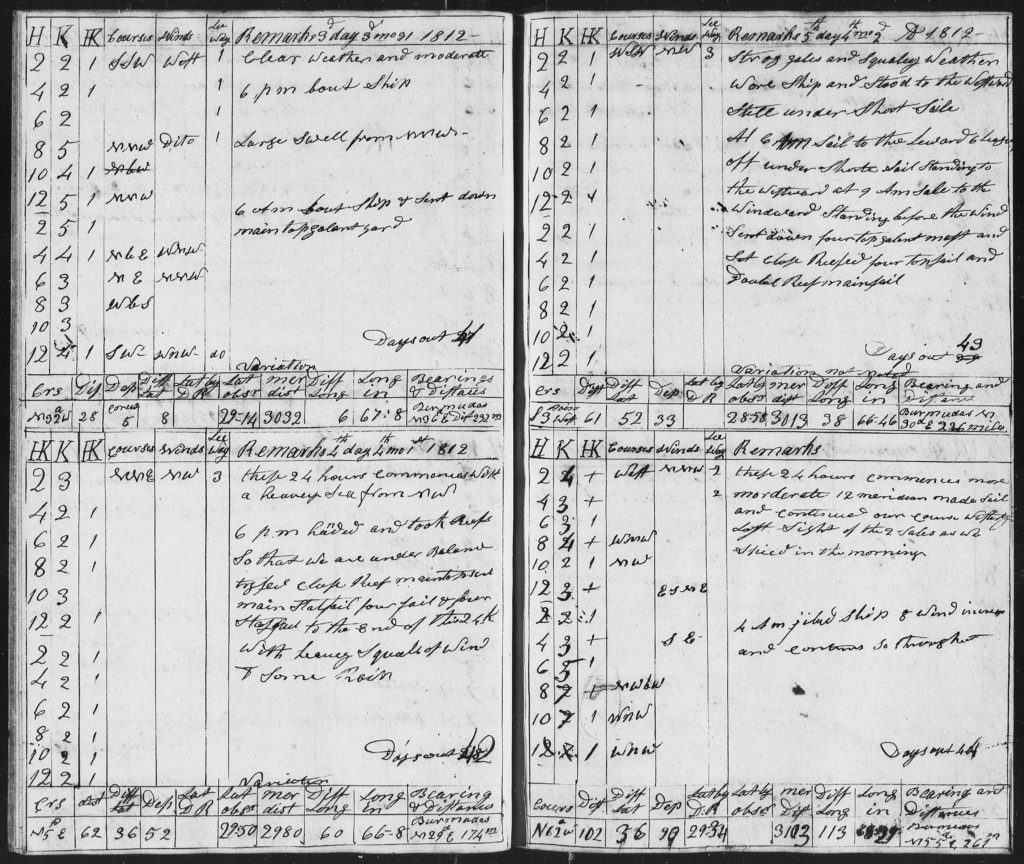 H K HK Courses Winds Lee Way Remarks 3 day 3 mo 31 1812
2 2 1 SSW West 1 Clear Weather and moderate
4 2 1 1 6 pm bout Ship
6 2 1
8 5 NNW Dito Large Swell from NNW
10 4 1
12 5 1 NNW 6 Am bout Ship & Sent down
2 5 1 main topgalent yard
4 4 1 NbE WNW
6 3 NE NNW
8 3 WbS
10 3
12 4 1 SW WNW do Days out 41
Variation
Crs Dis Dep Diff Lat Lat by DR Lat obs mer dist Diff Long Long in Bearings & Distances
28 5 8 29-14 3032 6 67:8 Burmudas
HK K HK Courses Winds Lee Way Remarks 4th day 4th mo 1st 1812
2 3 NNE NW 3 these 24 hours commences With
a heavey Sea from NW
4 2 1
6 2 1 6 pm handed and took Reefs
8 2 1 So that we are under Balanc
10 3 close Reef maintopsail
12 2 1 main Staysail four sail & four
Staysail to the End of this 24 h
2 2 1 With heavey Squals of Wind
4 2 1 & Some Rain
6 2 1
8 2 1
10 2 1 Days out 42
12 2 1
Variation
Crs dist Diff Lat Dep Lat DR Lat obs mer dist Diff Long Long in Bearing & Distances
62 36 52 2950 2980 60 66-8 Burmudas
H K HK Courses Winds Lee Way Remarks 5th day 4th mo 2d AD 1812
2 2 1 WSW NW 3 Strong gales and Squaley Weather
4 2 1 Wore Ship and Stood to the Westward
6 2 1 Still under Short Saile
8 2 1 At 6 Am Sail to the Leward 6 Leags
10 2 1 off under Shorte Sail Standing to
12 2 4 the Westward at 9 Am Sale to the
Windward Standing before the Wind
2 2 1 Sent down four topgalent mast and
4 2 1 Set Close Reefed four topsail and
6 2 1 Doubel Reef mainsail
8 2 1
10 2 1
12 2 1 Days out 43
Variation not noted
Crs Dis Diff Lat Dep Lat by DR Lat by obs mer dist Diff Long Long in Bearing and Distanc
61 52 33 28-58 3013 38 66-46 Burmudas N
30d E 226 mils
H K HK Courses Winds Lee Way Remarks
2 4 + West NNW 2 these 24 hours commences more
4 3 + 2 morderate 12 meridian made Sail
6 3 1 and continued our course Westerly
8 4 + WNW Lost Sight of the 2 Sales as we
10 2 1 NW Spied in the morning
12 3 + ESNE
2 2 1 4 Am jibed Ship & Wind increses
4 3 + SE and continus So throughout
6 5 1
8 7 NWbW
10 7 1 WNW
12 1 WNW Days out 44
Courses Dist Diff Lat Dep Lat by DR Lat by obs mer Dif Diff Long Long in Bearing and Distances
102 36 99 29-34 3103 113 Burmudas